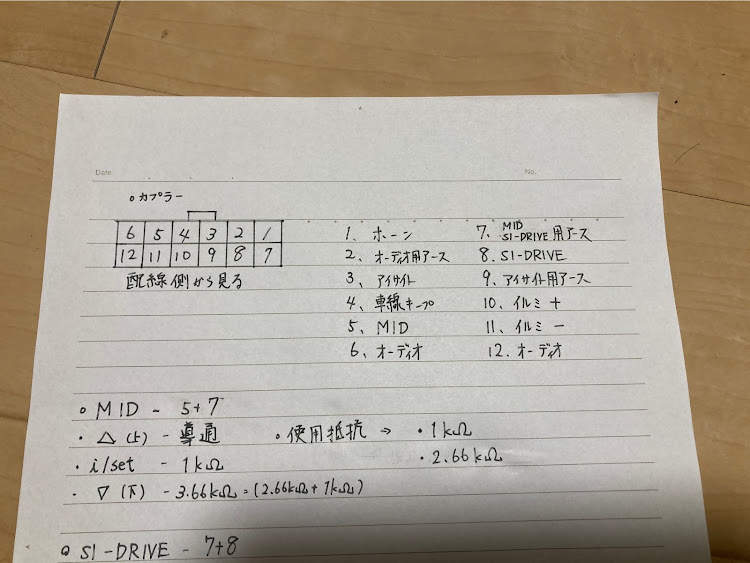 Date
No.
○ カプラー
6 5 4 3 2 1
12 11 10 9 8 7
配線側から見る
1、ホーン
2、オーディオ用アース
3、アイサイト
4、車線キープ
5、MID
6、オーディオ
7. MID
SI-DRIVE用アース
8. SI-DRIVE
9、アイサイト用アース
10、イルミ +
11、イルミ −
12. オーディオ
○ MID - 5+7
・△(上) - 導通
・i/set - 1kΩ
・▽(下) - 3.66kΩ=(2.66kΩ+1kΩ)
○使用抵抗 → ・1kΩ
・2.66kΩ
○ SI-DRIVE - 7+8